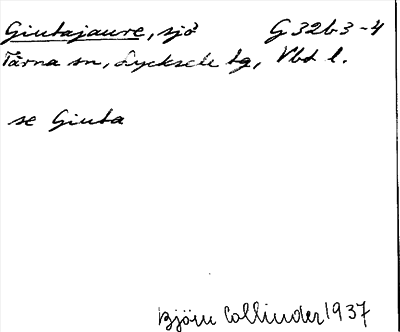 Giutajaure, sjö G 32b3-4
Tärna sn, Lycksele tg, Vbd l.
se Giuta
Björn Collinder 1937